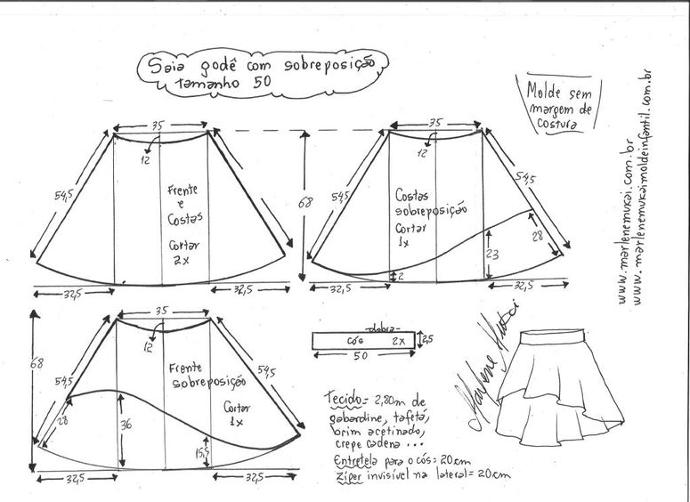 Saia godê com sobreposição
tamanho 50
Molde sem
margem de
costura
www.marlenemukai.com.br
www.marlenemukaimoldeinfantil.com.br
35
12
54,5
Frente
e
Costas
Cortar
2x
32,5
32,5
68
35
12
54,5
54,5
Costas
sobreposição
Cortar
1x
28
23
2
32,5
32,5
68
35
12
54,5
54,5
Frente
sobreposição
Cortar
1x
28
36
15,5
32,5
32,5
dobra
cós 2x
2,5
50
Marlene Mukai
Tecido= 2,80m de
gabardine, tafetá,
brim acetinado,
crepe cadena ...
Entretela para o cós= 20cm
Zíper invisível na lateral= 20cm